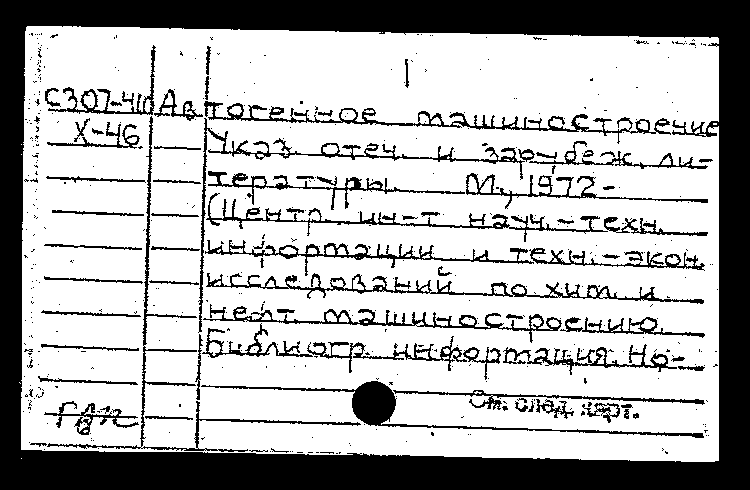 1
С307-410 Автогенное машиностроение
Х-46 Указ. отеч. и зарубеж. ли-
тературы. М., 1972-
(Центр. ин-т науч.-техн.
информации и техн.-экон.
исследований по хим. и
нефт. машиностроению.
Библиогр. информация. Но-
См. след. карт.